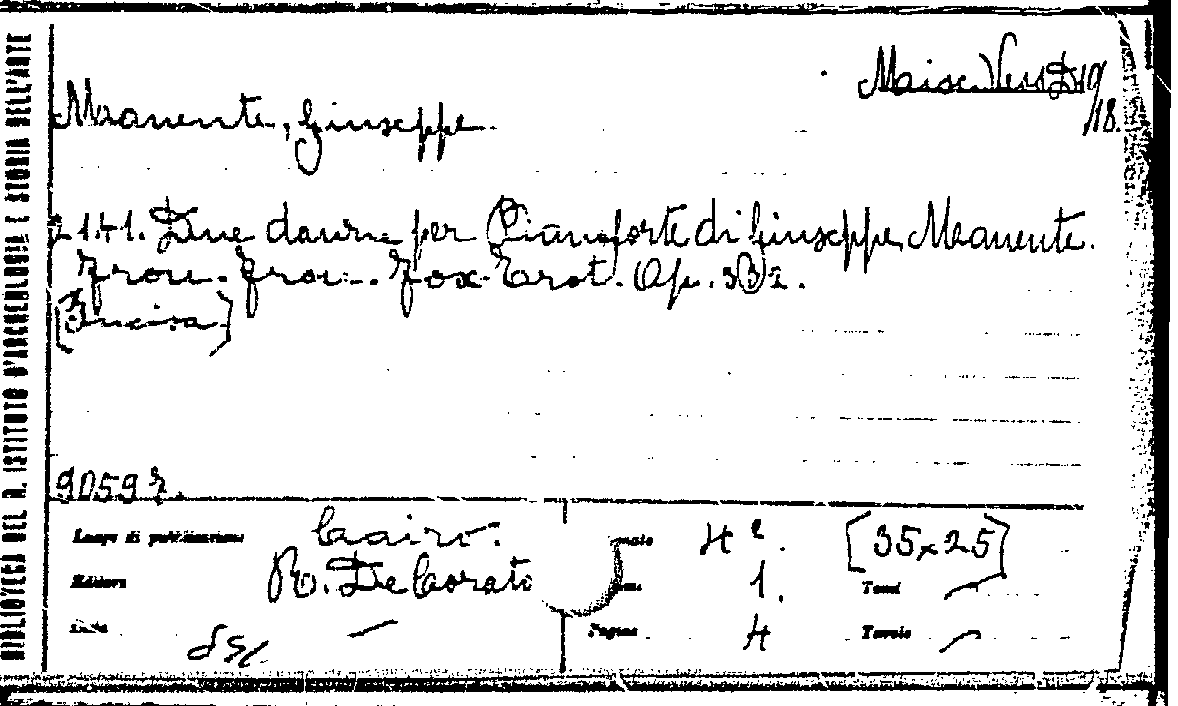 BIBLIOTECA DEL R. ISTITUTO D'ARCHEOLOGIA E STORIA DELL'ARTE
/18.
Manente, Giuseppe.
2141. Due danze per Pianoforte di Giuseppe Manente.
Frou-Frou. Fox-Trot. Op. 332.
[Incisa]
90597.
Luogo di pubblicazione Cairo. 4º. [35x25]
Editore R. De Corato 1. Tomi —
Data — Pagine 4 Tavole —